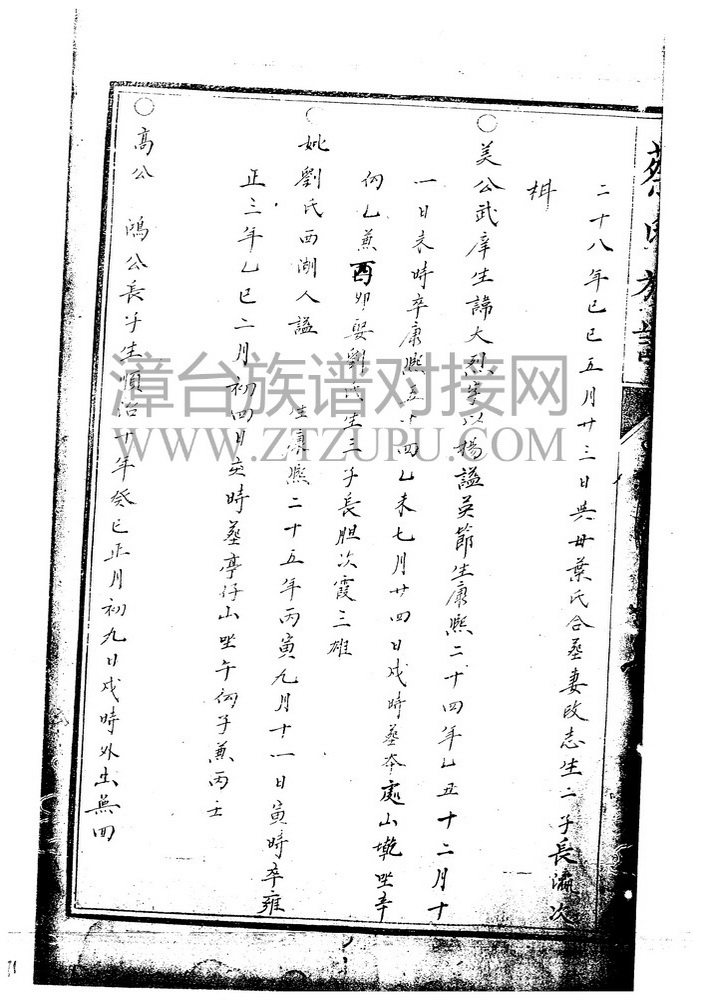 蔡氏族譜
二十八年已巳五月廿三日與母葉氏合葬妻改志生二子長 次
楫
○美公武庠生諱大烈字以揚謚英節生康熙二十四年乙丑十二月十
一日未時卒康熙五十四乙未七月廿四日戌時葬本處山墘坐辛
向乙兼酉卯娶劉氏生三子長胆次霞三雄
○妣劉氏西湖人謚 生康熙二十五年丙寅九月十一日寅時卒雍
正三年乙巳二月初四日亥時葬亭仔山坐午向子兼丙壬
○高公 鴻公長子生順治十年癸巳正月初九日戌時外出無回
漳台族谱对接网
WWW.ZTZUPU.COM